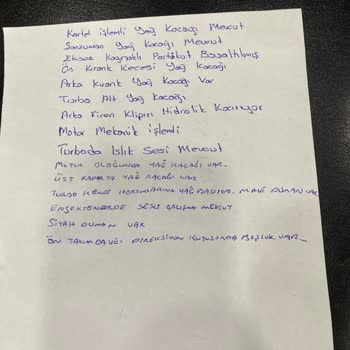 Karter işlemli Yağ Kaçağı Mevcut
Şanzuman Yağ Kaçağı Mevcut
Eksoz Kaynaklı Partikul Boşaltılmış
Ön Kırank Kecesi Yağ Kaçağı
Arka Kırank Yağ Kaçağı Var
Turbo Alt Yağ Kaçağı
Arka Firen Klipiri Hidrolik Kacırıyor
Motor Mekanik işlemli
Turboda Islık Sesi Mevcut
MOTOR BLOĞUNDA YAĞ KAÇAĞI VAR.
ÜST KAPAKTA YAĞ KAÇAĞI VAR
TURBO HORTUMLARINA YAĞ MAVİ DUMAN VAR
ENJEKTÖRLERDE SESLİ ÇALIŞMA MEVCUT
SİYAH DUMAN VAR
ÖN TAKIMDA VE DİREKSİYON KUTUSUNDA BOŞLUK VAR